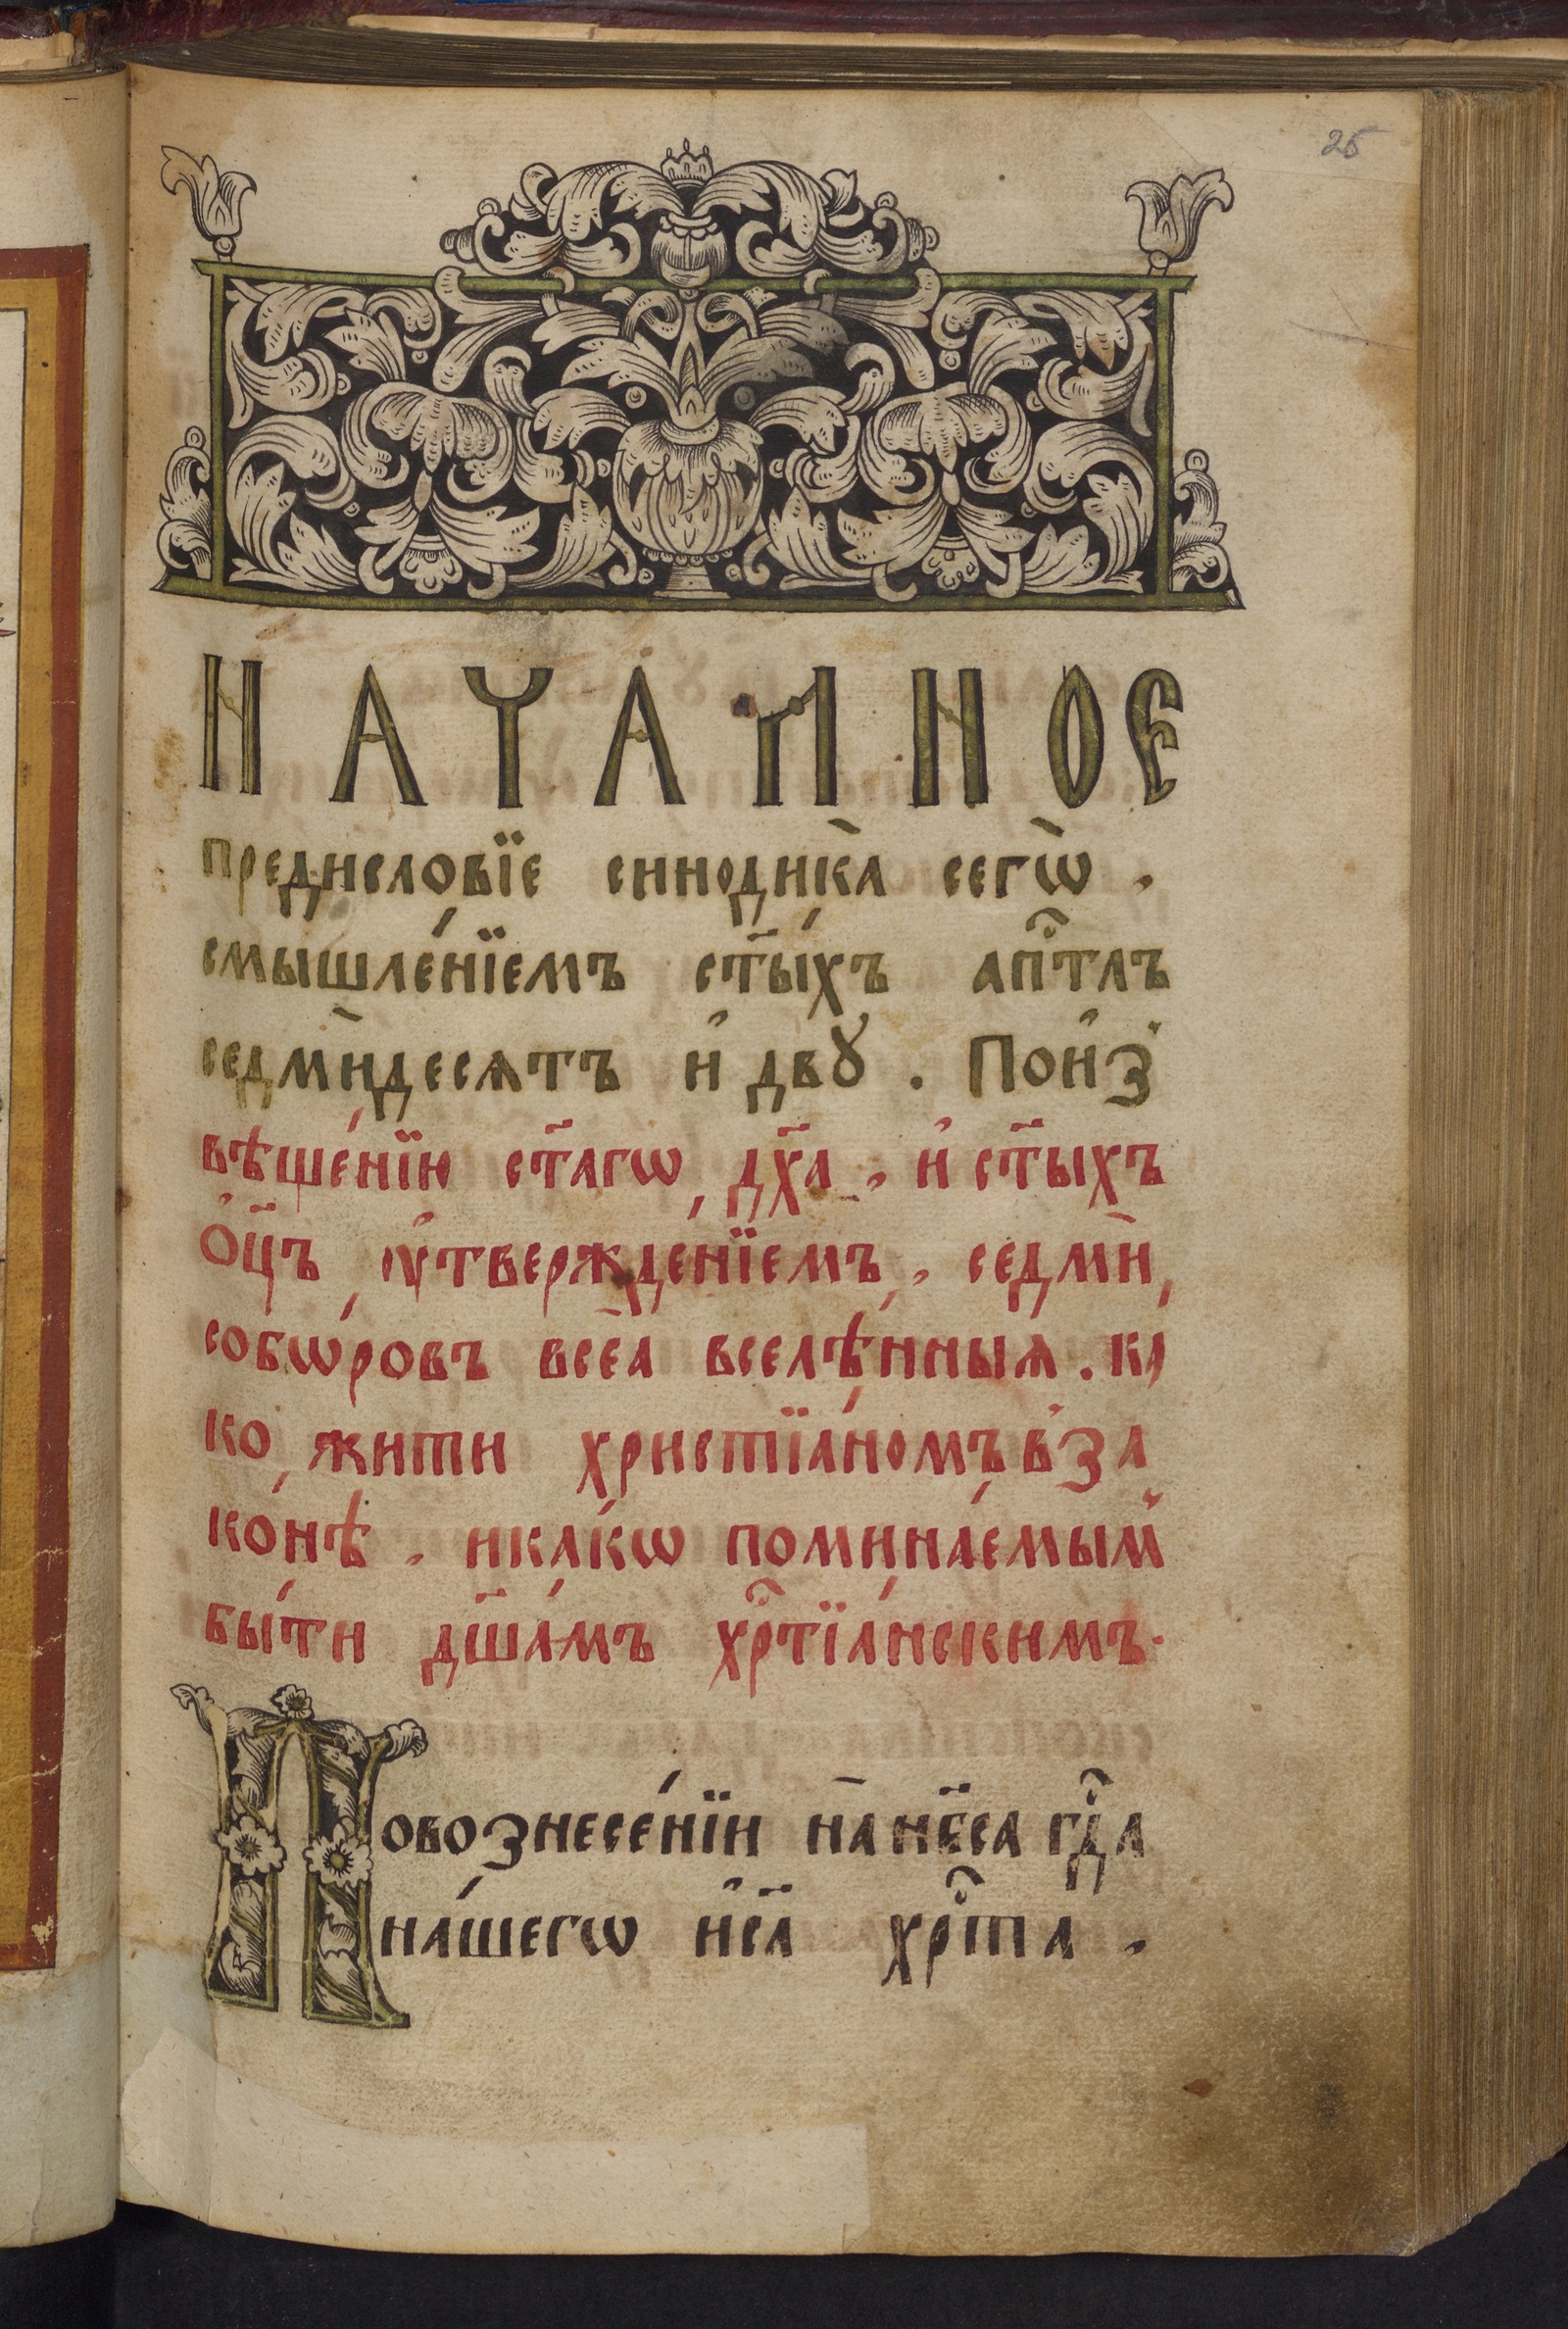 25
НАЧАЛНОЕ
предисловїе синодика̀ сегѡ̀ ,
смышле́нїемъ ст҃ы́хъ ап҃тлъ
седмѝдесѧтъ и҆ двꙋ . По и҆з̾
вѣше́нїю ст҃агѡ дх҃а , и҆ ст҃ыхъ
о҆ц҃ъ ѹ҆твержде́нїемъ , седмѝ
собѡ́ровъ всеа̀ вселѣ́нныѧ . ка
ко жити христїа́номъ в̾ за
ко́нѣ . и како́ѡ помина́емым̾
бы́ти дш҃а́мъ хрⷭ҇тїа́нскимъ .
По вознесе́нїи на̀ нб҃са гдⷭ҇а
на́шегѡ і҆и҃са хрⷭ҇та .